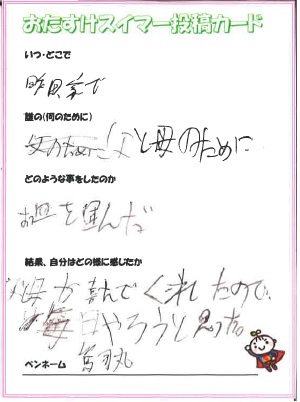 おたすけスイマー投稿カード
いつ・どこで
昨日家で
誰の(何のために)
父と母のために
どのような事をしたのか
お皿を運んだ
結果、自分はどの様に感じたか
父母が喜んでくれたので、
毎日やろうと思った。
ペンネーム